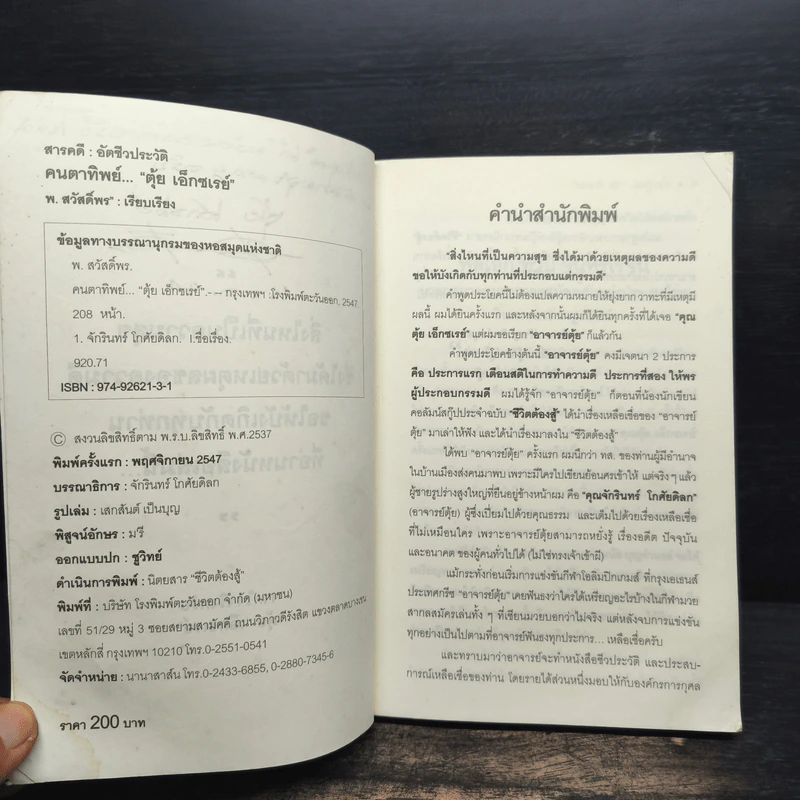 สารคดี : อัตชีวประวัติ
คนตาทิพย์... “ตุ้ย เอ็กซเรย์”
พ. สวัสดิ์พร" : เรียบเรียง
ข้อมูลทางบรรณานุกรมของหอสมุดแห่งชาติ
พ. สวัสดิ์พร.
คนตาทิพย์... “ตุ้ย เอ็กซเรย์”.- – กรุงเทพฯ :โรงพิมพ์ตะวันออก. 2547.
208 หน้า.
1. จักรินทร์ โกศัยดิลก. I.ชื่อเรื่อง.
920.71
ISBN : 974-92621-3-1
© สงวนลิขสิทธิ์ตาม พ.ร.บ.ลิขสิทธิ์ พ.ศ.2537
พิมพ์ครั้งแรก : พฤศจิกายน 2547
บรรณาธิการ : จักรินทร์ โกศัยดิลก
รูปเล่ม : เสกสันต์ เป็นบุญ
พิสูจน์อักษร : มารี
ออกแบบปก : ชูวิทย์
ดำเนินการพิมพ์ : นิตยสาร “ชีวิตต้องสู้”
พิมพ์ที่ : บริษัท โรงพิมพ์ตะวันออก จำกัด (มหาชน)
เลขที่ 51/29 หมู่ 3 ซอยสยามสามัคคี ถนนวิภาวดีรังสิต แขวงตลาดบางเขน
เขตหลักสี่ กรุงเทพฯ 10210 โทร.0-2551-0541
จัดจำหน่าย : นานาสาส์น โทร.0-2433-6855, 0-2880-7345-6
ราคา 200 บาท
คำนำสำนักพิมพ์
“สิ่งไหนที่เป็นความสุข ซึ่งได้มาด้วยเหตุผลของความดี
ขอให้บังเกิดกับทุกท่านที่ประกอบแต่กรรมดี”
คำพูดประโยคนี้ไม่ต้องแปลความหมายให้ยุ่งยาก วาทะที่มีเหตุมี
ผลนี้ ผมได้ยินครั้งแรก และหลังจากนั้นผมก็ได้ยินทุกครั้งที่ได้เจอ “คุณ
ตุ้ย เอ็กซเรย์” แต่ผมขอเรียก “อาจารย์ตุ้ย” ก็แล้วกัน
คำพูดประโยคข้างต้นนี้ “อาจารย์ตุ้ย” คงมีเจตนา 2 ประการ
คือ ประการแรก เตือนสติในการทำความดี ประการที่สอง ให้พร
ผู้ประกอบกรรมดี ผมได้รู้จัก “อาจารย์ตุ้ย” ก็ตอนที่น้องนักเขียน
คอลัมน์สกู๊ปประจำฉบับ “ชีวิตต้องสู้” ได้นำเรื่องเหลือเชื่อของ “อาจารย์
ตุ้ย” มาเล่าให้ฟัง และได้นำเรื่องมาลงใน “ชีวิตต้องสู้”
ได้พบ “อาจารย์ตุ้ย” ครั้งแรก ผมนึกว่า ทส. ของท่านผู้มีอำนาจ
ในบ้านเมืองส่งคนมาพบ เพราะมีใครไปเขียนย้อนศรเข้าให้ แต่จริง ๆ แล้ว
ผู้ชายรูปร่างสูงใหญ่ที่ยืนอยู่ข้างหน้าผม คือ “คุณจักรินทร์ โกศัยดิลก”
(อาจารย์ตุ้ย) ผู้ซึ่งเปี่ยมไปด้วยคุณธรรม และเต็มไปด้วยเรื่องเหลือเชื่อ
ที่ไม่เหมือนใคร เพราะอาจารย์ตุ้ยสามารถหยั่งรู้ เรื่องอดีต ปัจจุบัน
และอนาคต ของผู้คนทั่วไปได้ (ไม่ใช่ทรงเจ้าเข้าผี)
แม้กระทั่งก่อนเริ่มการแข่งขันกีฬาโอลิมปิกเกมส์ ที่กรุงเอเธนส์
ประเทศกรีซ “อาจารย์ตุ้ย” เคยฟันธงว่าใครได้เหรียญอะไรบ้างในกีฬามวย
สากลสมัครเล่นทั้ง ๆ ที่เซียนมวยบอกว่าไม่จริง แต่หลังจบการแข่งขัน
ทุกอย่างเป็นไปตามที่อาจารย์ฟันธงทุกประการ... เหลือเชื่อครับ
และทราบมาว่าอาจารย์จะทำหนังสือชีวประวัติ และประสบ-
การณ์เหลือเชื่อของท่าน โดยรายได้ส่วนหนึ่งมอบให้กับองค์กรการกุศล